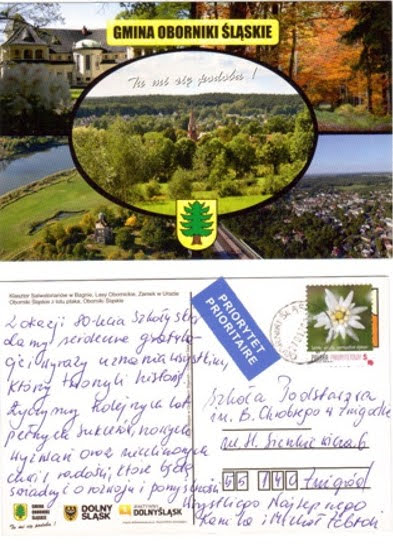 GMINA OBORNIKI ŚLĄSKIE
Tu mi się podoba!
Klasztor Salwatorianów w Bagnie, Lasy Obornickie, Zamek w Urazie
Oborniki Śląskie z lotu ptaka, Oborniki Śląskie
PRIORYTET
PRIORITAIRE
Z okazji 80-lecia Szkoły
damy serdeczne gratula-
cje i wyrazy uznania wszystkim,
którzy tworzyli historię
Życzymy kolejnych lat
pełnych sukcesów, nowych
wyzwań oraz
chwil radości, które będą
o rozwoju i pomyślności
Wszystkiego Najlepszego
Kamila i Michał
Szkoła Podstawowa
im. B. Chrobrego w Żmigrodzie
ul. H. Sienkiewicza 6
55 140 Żmigród
GMINA
OBORNIKI
ŚLĄSKIE
Tu mi się podoba!
DOLNY
ŚLĄSK
DOLNYŚLĄSK